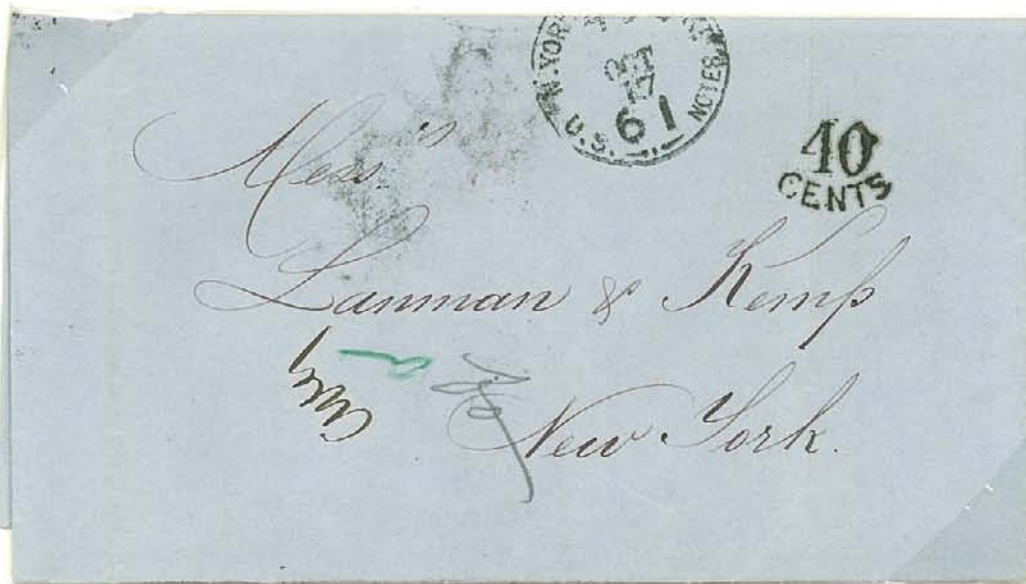 N. YOR
OCT
17
61
U.S. NOTES
40
CENTS
Mess.rs
Lanman & Kemp
New York.